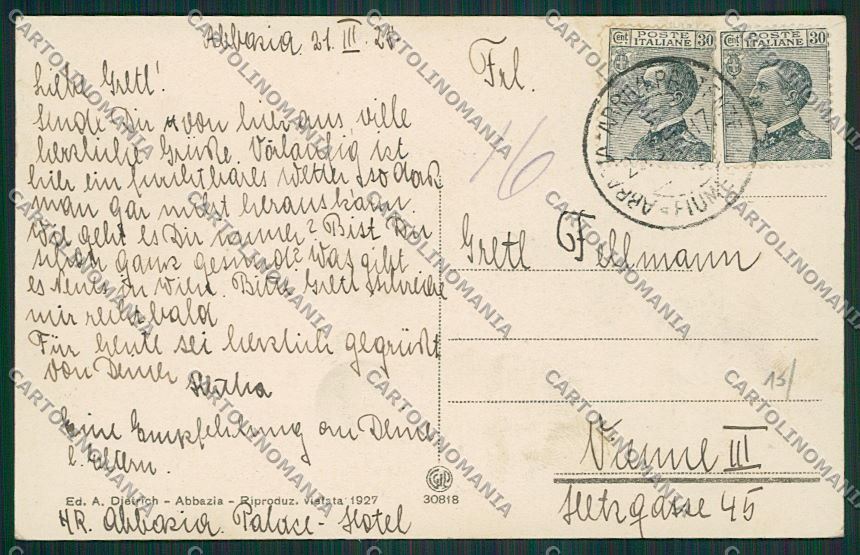 Abbazia. 21. III. 28
Liebe Gretl!
Sende Dir von hier aus, viele
herzliche Grüsse. Vorläufig ist
hier ein furchtbares Wetter, so dass
man gar nicht heraus kann.
Wie geht es Dir immer? Bist Du
schon ganz gesund? Was gibt
es Neues in Wien. Bitte Gretl schreibe
mir recht bald
Für heute sei herzlich gegrüsst
von Deiner
Hertha
Eine Empfehlung an Deine
l. Eltern.
Ed. A. Dietrich - Abbazia - Riproduz. vietata 1927
HR. Abbazia. Palace-Hotel
30818
Frl.
16
Gretl Fellmann
Vienne III
Hetzgasse 45
15/
Cent POSTE ITALIANE 30
Cent POSTE ITALIANE 30
ABBAZIA
FIUME
CARTOLINOMANIA